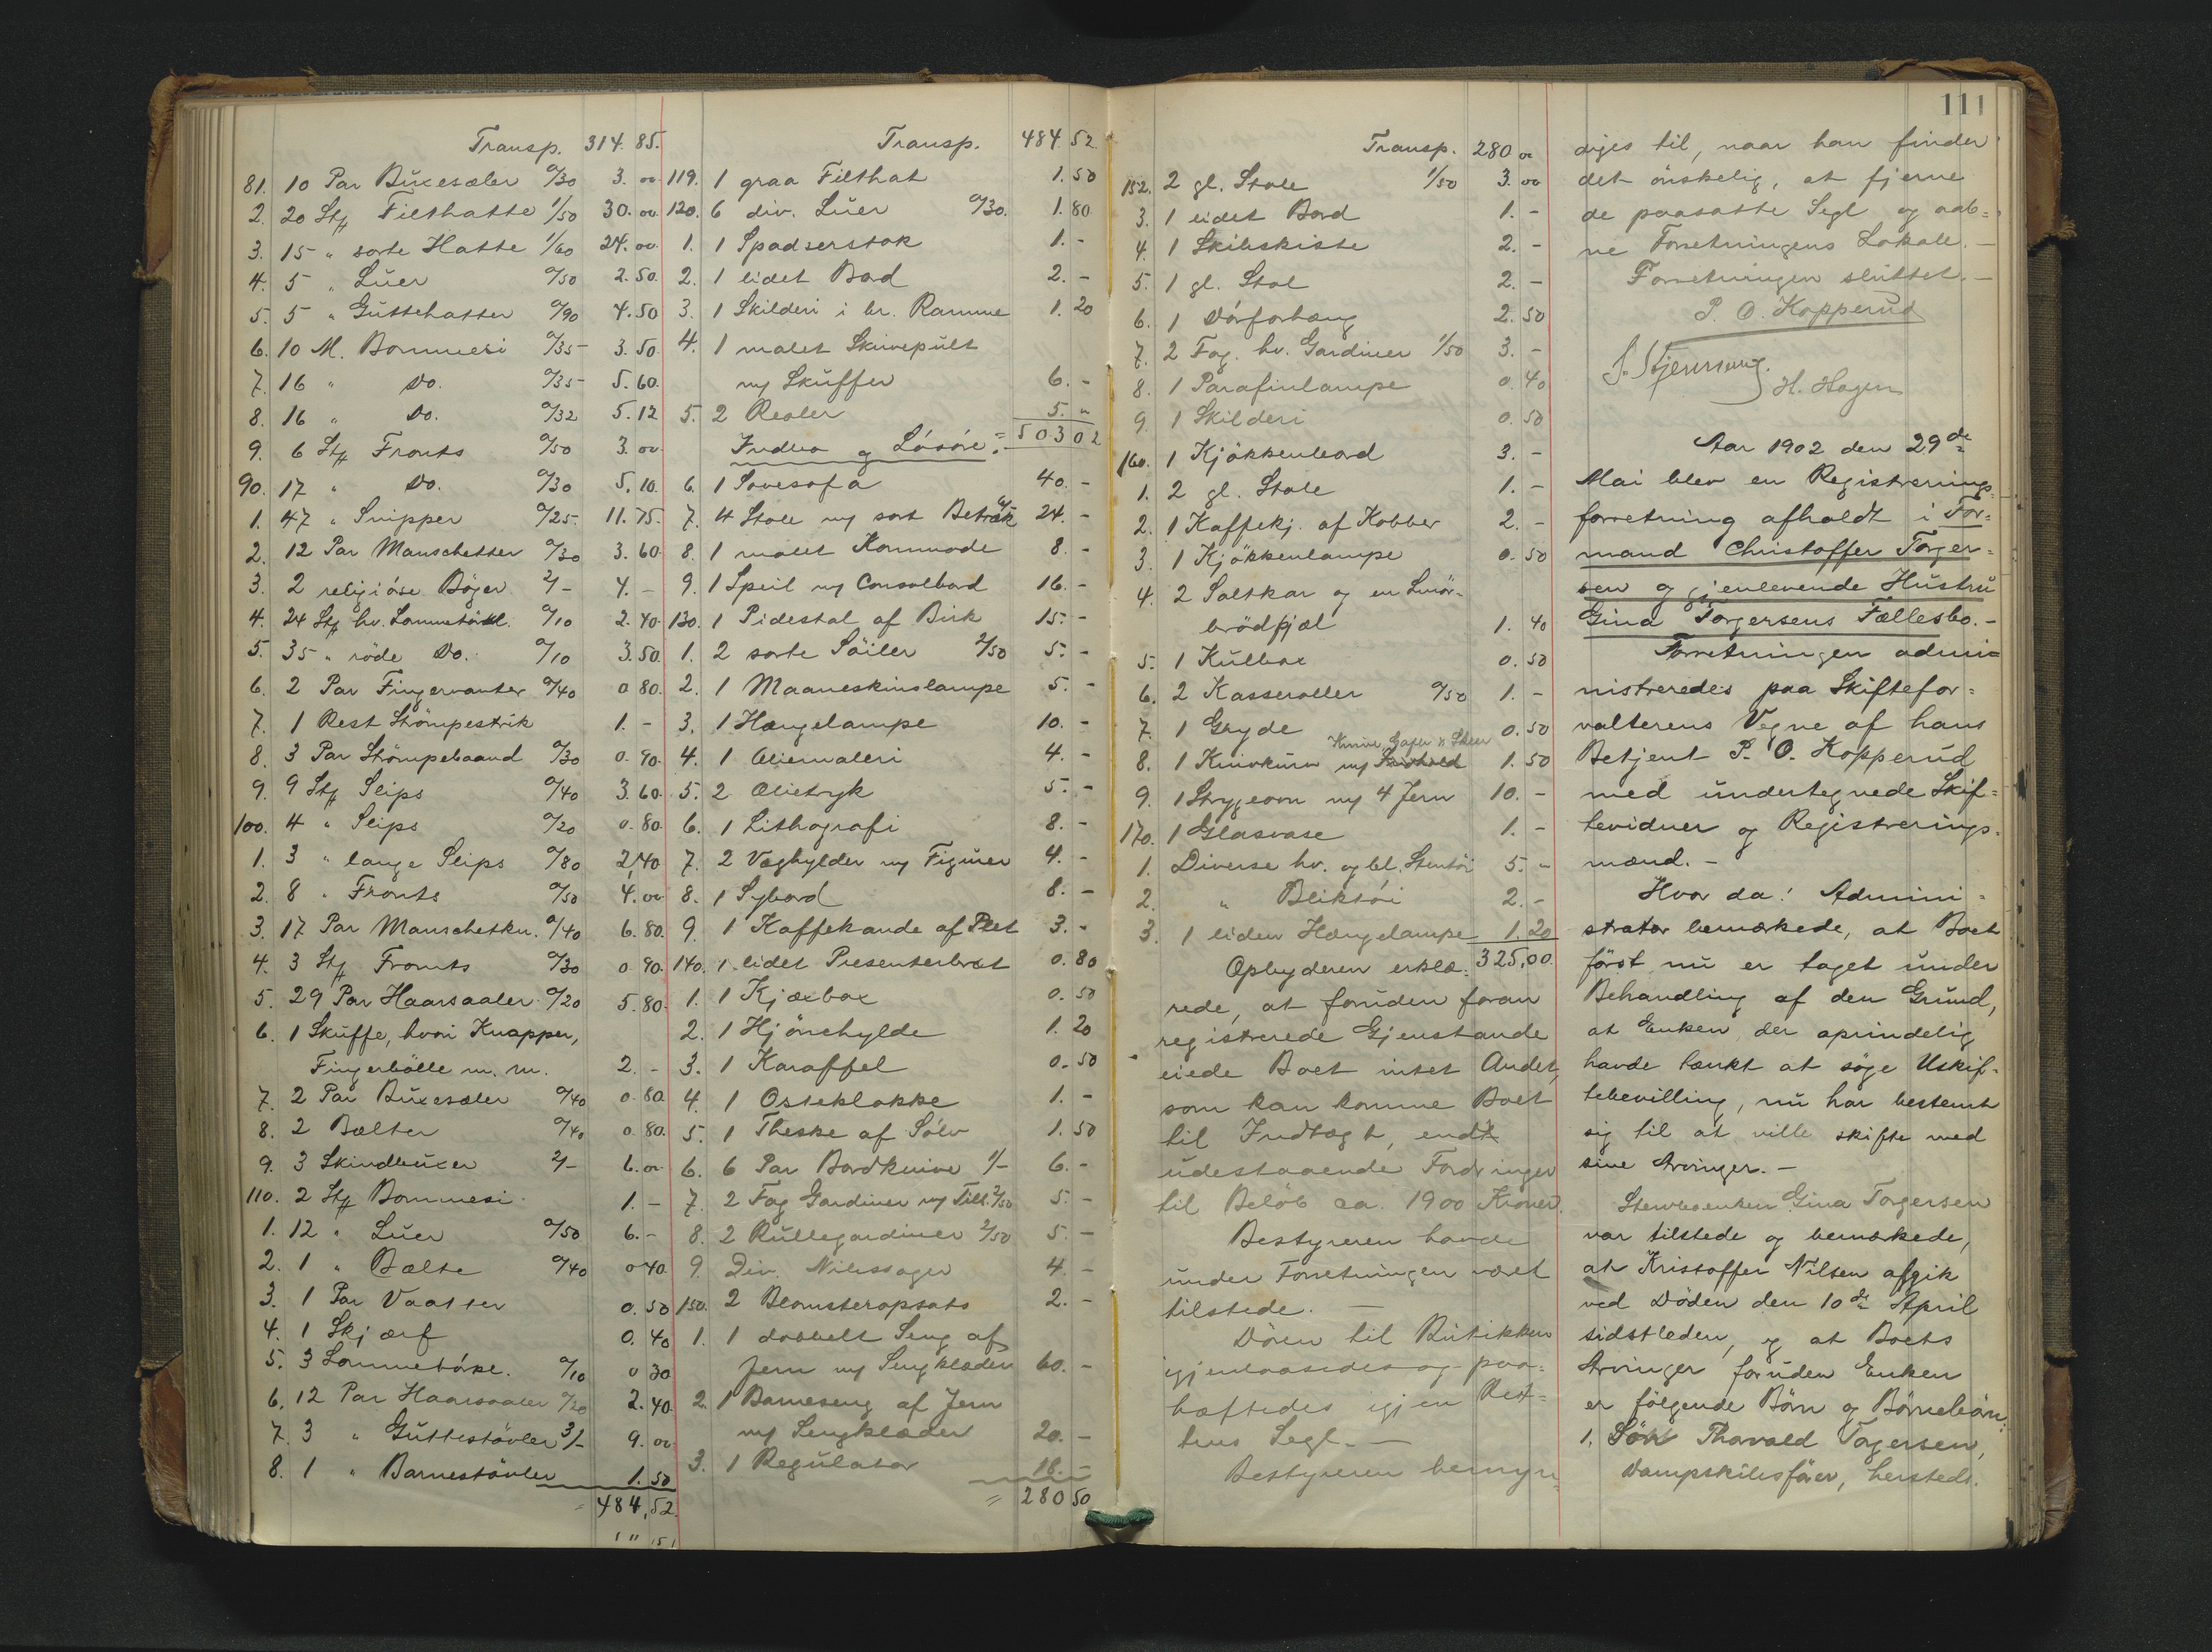 111
Transp. 314.85.
81. 10 Par Buxesæler a/30 3.00
2. 20 Stk Filthatte 1/50 30.00
3. 15 " sorte Hatte 1/60 24.00
4. 5 " Luer a/50 2.50
5. 5 " Guttehatter a/90 4.50
6. 10 M. Bommesi a/35 3.50
7. 16 " Do. a/35 5.60
8. 16 " Do. a/32 5.12
9. 6 Stk Fronts a/50 3.00
90. 17 " Do. a/30 5.10
1. 47 " Snipper a/25 11.75
2. 12 Par Manschetter a/30 3.60
3. 2 religiöse Böger 2/- 4.-
4. 24 Stk hv. Lommetökl. a/10 2.40
5. 35 " röde Do. a/10 3.50
6. 2 Par Fingervanter a/40 0.80
7. 1 Rest Strömpestrik 1.-
8. 3 Par Strömpebaand a/30 0.90
9. 9 Stk Slips a/40 3.60
100. 4 " Slips a/20 0.80
1. 3 " lange Slips a/80 2,40
2. 8 " Fronts a/50 4.00
3. 17 Par Manschetkn. a/40 6.80
4. 3 Stk Fronts a/30 0.90
5. 29 Par Haarsaaler a/20 5.80
6. 1 Skuffe, hvori Knapper,
Fingerbölle m. m. 2.-
7. 2 Par Buxesæler a/40 0.80
8. 2 Bælter a/40 0.80
9. 3 Skindbuxer 2/- 6.00
110. 2 Stk Bommesi 1.-
1. 12 " Luer a/50 6.-
2. 1 " Bælte a/40 0 40
3. 1 Par Vaatter 0.50
4. 1 Skjærf 0.40
5. 3 Lommetöke. a/10 0 30
6. 12 Par Haarsaaler a/20 2.40
7. 3 " Guttestövler 3/- 9.00
8. 1 " Barnestövler 1.50
= 484,52
Transp. 484 52
119. 1 graa Filthat 1.50
120. 6 div. Luer a/30. 1.80
1. 1 Spadserstok 1.-
2. 1 lidet Bord 2.-
3. 1 Skilderi i br. Ramme 1.20
4. 1 malet Skrivepult
m/ Skuffer 6.-
5. 2 Reoler 5.-
Indbo og Lösöre. = 503 02
6. 1 Sovesofa 40.-
7. 4 Stole m/ sort Betræk 24.-
8. 1 malet Kommode 8.-
9. 1 Speil m/ Consolbord 16.-
130. 1 Pidestal af Birk 15.-
1. 2 sorte Söiler 2/50 5.-
2. 1 Maaneskinslampe 5.-
3. 1 Hængelampe 10.-
4. 1 Oliemaleri 4.-
5. 2 Olietryk 5.-
6. 1 Lithografi 8.-
7. 2 Væghylder m/ Figurer 4.-
8. 1 Sybord 8.-
9. 1 Kaffekande af Plet 3.-
140. 1 lidet Presenterbræt 0.80
1. 1 Kjæxbox 0.50
2. 1 Hjörnehylde 1.20
3. 1 Karaffel 0.50
4. 1 Osteklokke 1.-
5. 1 Theske af Sölv 1.50
6. 6 Par Bordknive 1/- 6.-
7. 2 Fag Gardiner m/ Tilb. 2/50 5.-
8. 2 Rullegardiner 2/50 5.-
9. Div. Nipssager 4.-
150. 2 Blomsteropsats 2.-
1. 1 dobbelt Seng af
Jern m/ Sengklæder 60.-
2. 1 Barneseng af Jern
m/ Sengklæder 20.-
3. 1 Regulator 18.-
= 280 50
Transp. 280 00
152. 2 gl. Stole 1/50 3.00
3. 1 lidet Bord 1.-
4. 1 Skibskiste 2.-
5. 1 gl. Stol 2.-
6. 1 Dörforhæng 2.50
7. 2 Fag. hv. Gardiner 1/50 3.-
8. 1 Parafinlampe 0.40
9. 1 Skilderi 0.50
160. 1 Kjökkenbord 3.-
1. 2 gl. Stole 1.-
2. 1 Kaffekj. af Kobber 2.-
3. 1 Kjökkenlampe 0.50
4. 2 Saltkar og en Smör-
brödfjæl 1.40
5. 1 Kulbox 0.50
6. 2 Kasseroller a/50 1.-
7. 1 Gryde 0.50
Knive, Gafler & Skeer
8. 1 Knivkurv m/ 1.50
9. 1 Strygeovn m/ 4 Jern 10.-
170. 1 Glasvase 1.-
1. Diverse hv. og bl. Stentöi 5.-
2. " Bliktöi 2.-
3. 1 liden Hængelampe 1.20
325,00
Opbyderen erklæ-
rede, at foruden foran
registrerede Gjenstande
eiede Boet intet Andet,
som kan komme Boet
til Indtægt, endt
udestaaende Fordringer
til Belöb ca. 1900 Kroner.
Bestyreren havde
under Forretningen været
tilstede. —
Dören til Butikken
igjenlaasedes og paa-
hæftedes igjen Ret-
tens Segl. —
Bestyreren bemyn-
diges til, naar han finder
det önskelig, at fjerne
de paasatte Segl og aab-
ne Forretningens Lokale. —
Forretningen sluttet. —
P. O. Kopperud
H. Hagen
Aar 1902 den 29de
Mai blev en Registrerings-
forretning afholdt i For-
mand Christoffer Torger-
sen og gjenlevende Hustru
Gina Torgersens Fællesbo. -
Forretningen admi-
nistreredes paa Skiftefor-
valterens Vegne af hans
Betjent P. O. Kopperud
med undertegnede Skif-
tevidner og Registrerings-
mænd. -
Hvor da! Admini-
strator bemærkede, at Boet
först nu er taget under
Behandling af den Grund,
at Enken, der oprindelig
havde tænkt at söge Uskif-
tebevilling, nu har bestemt
sig til at ville skifte med
sine Arvinger. —
Stervboenken Gina Torgersen
var tilstede og bemærkede,
at Kristoffer Nilsen afgik
ved Döden den 10de April
sidstleden, og at Boets
Arvinger foruden Enken
er fölgende Börn og Börnebörn:
1. Sön Thorvald Torgersen,
Dampskibsförer, hersteds.